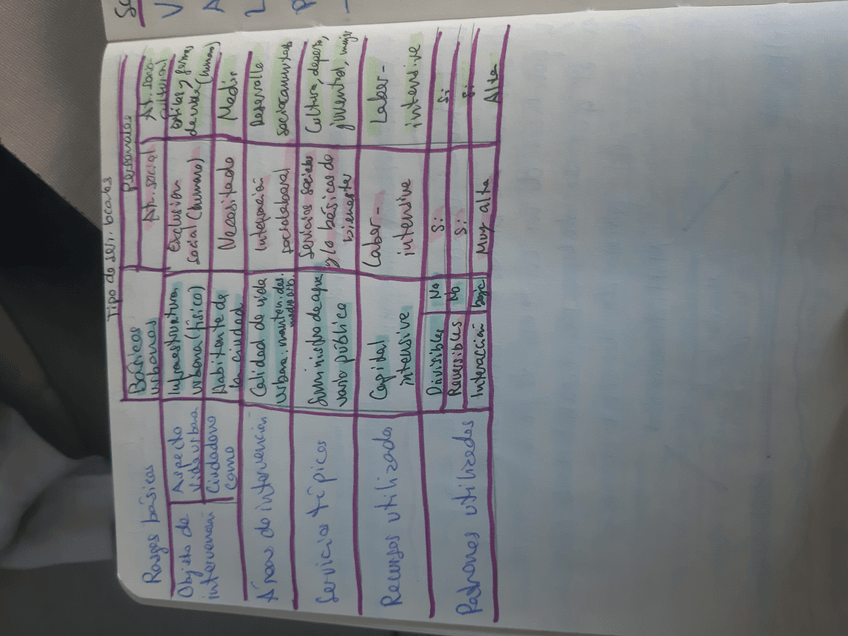 Tipo de serv. locales
Rasgos básicos
Básicos
urbanos
Personales
At. social
At. socio-
cultural
Objeto de
intervención
Aspecto
Vida urbana
Infraestructura
urbana (físico)
Exclusión
social (humano)
estilos y formas
de vida (humano)
Ciudadano
como
Habitante de
la ciudad
Necesitado
Medir
Áreas de intervención
Calidad de vida
urbana: manten. del
Interacción
sociolaboral
Desarrollo
sociocomunitar
Servicios típicos
Suministro de agua
vario público
Servicios sociales
y/o básicos de
bienestar
Cultura, deporte,
juventud, mujer
Recursos utilizados
Capital
intensive
Labor-
intensive
Labor-
intensive
Patrones utilizados
Divisibles
No
Sí
Sí
Reversibles
No
Sí
Sí
Interacción
Baja
Muy alta
Alta